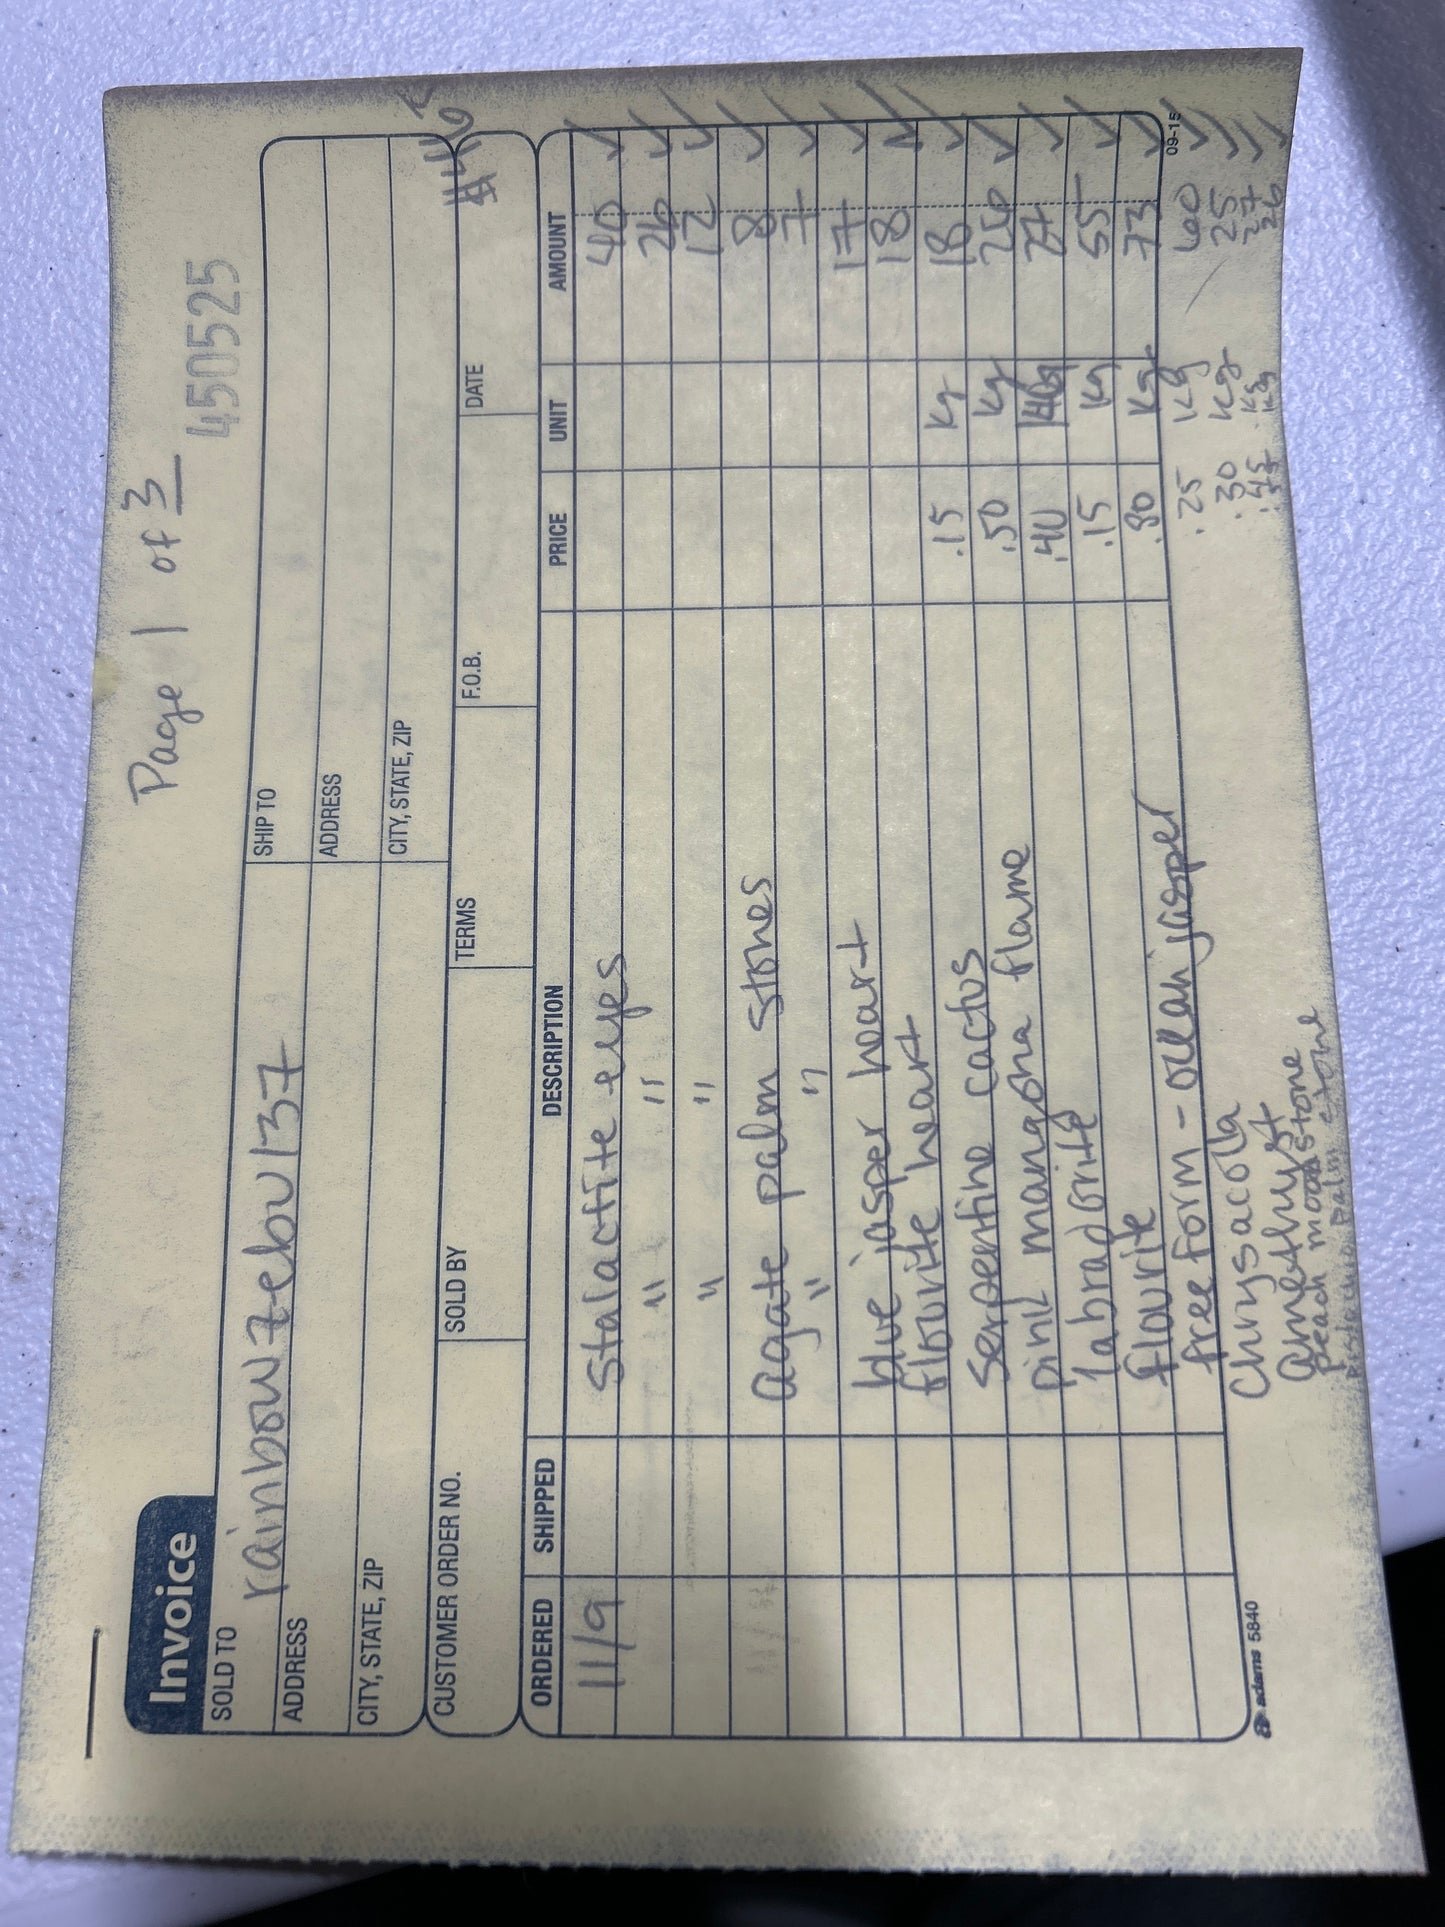 Page 1 of 3
450525
Invoice
SOLD TO rainbowzebu137
SHIP TO
ADDRESS
ADDRESS
CITY, STATE, ZIP
CITY, STATE, ZIP
CUSTOMER ORDER NO.
SOLD BY
TERMS
F.O.B.
DATE
ORDERED SHIPPED DESCRIPTION PRICE UNIT AMOUNT
11/9 Stalactite eyes 40 ✓
" " 26 ✓
" " 12 ✓
agate palm stones 8 ✓
" " 7 ✓
blue jasper heart 17 ✓
flourite heart 18 ✓
Serpentine cactus .15 Kg 18 ✓
pink mangona flame .50 Kg 26 ✓
labradorite .40 Kg 27 ✓
flourite .15 Kg 55 ✓
free form - ocean jasper .80 Kg 73 ✓
Chrysacolla .25 Kg 60 ✓
amethyst .30 Kg 25 ✓
peach moonstone .45 Kg 27 ✓
pistachio palm stone Kg 26 ✓
adams 5840
09-15